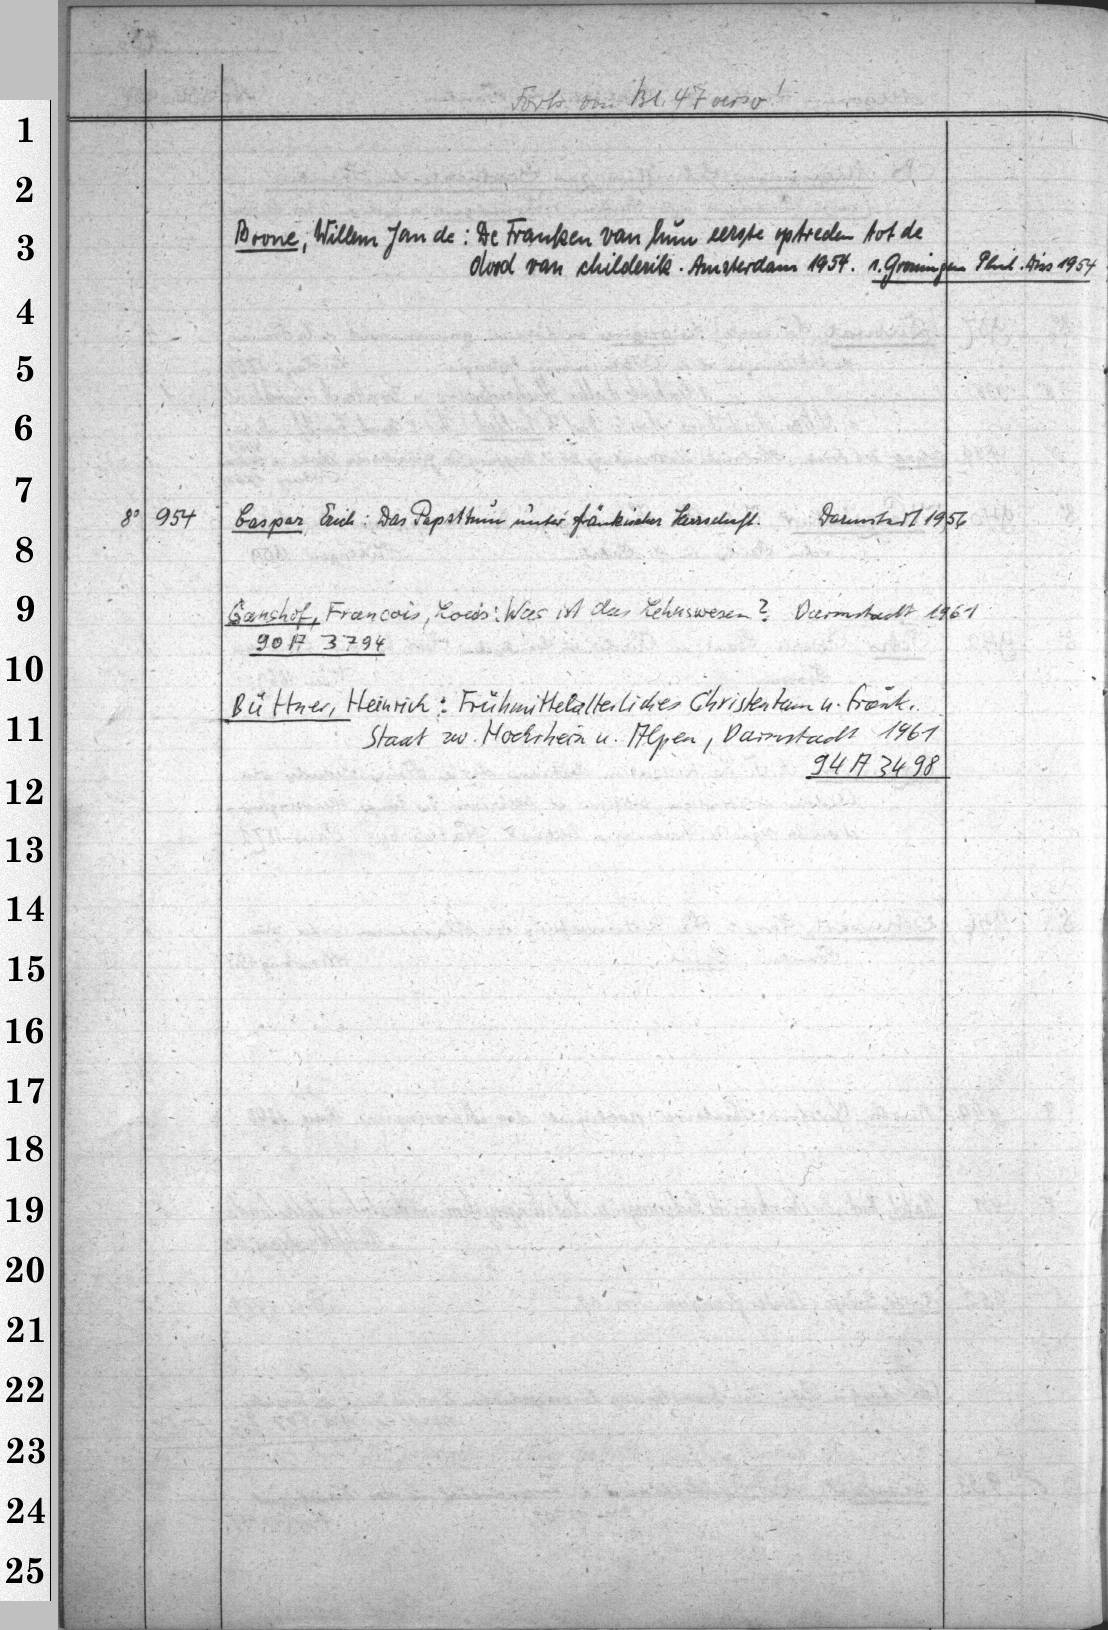 Forts. von Bl. 47 verso!
1
2
3
4
5
6
7
8
9
10
11
12
13
14
15
16
17
18
19
20
21
22
23
24
25
Boone, Willem Jan de: De Franken van hun eerste optreden tot de
dood van childerik. Amsterdam 1954. r. Groningen Phil. Diss 1954
8° 954 Caspar Erich: Das Papsttum unter fränkischer Herrschaft. Darmstadt 1956
Ganshof, Francois, Louis: Was ist das Lehnswesen? Darmstadt 1961
90 A 3794
Büttner, Heinrich: Frühmittelalterliches Christentum u. fränk.
Staat zw. Hochrhein u. Alpen, Darmstadt 1961
94 A 3498